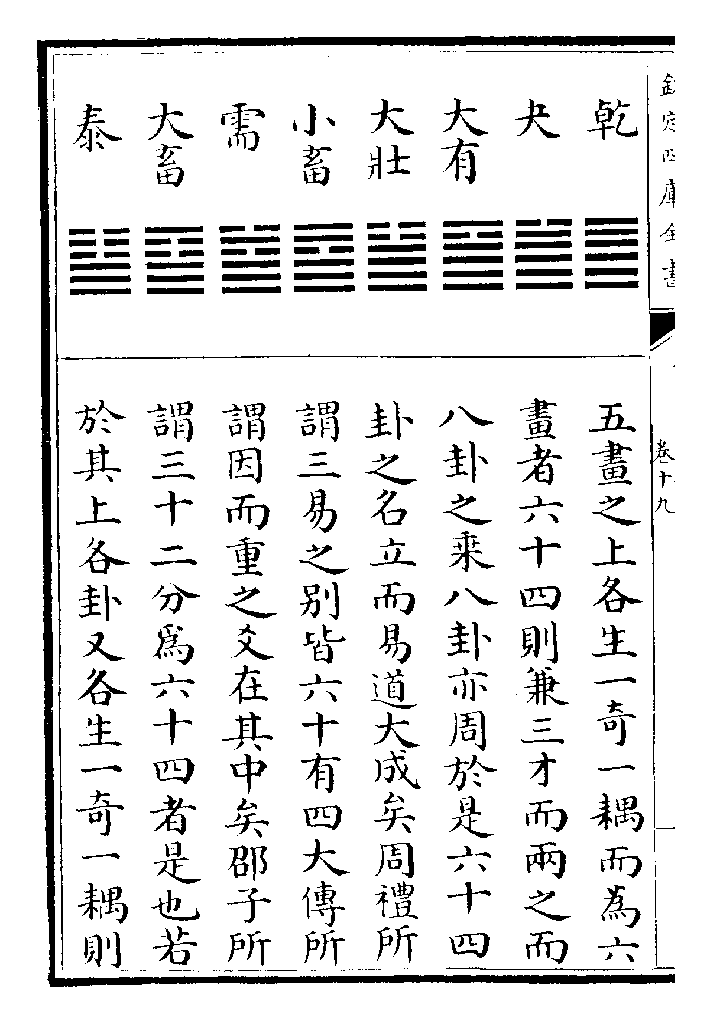 欽定四庫全書
卷十九
乾
夬
大有
大壯
小畜
需
大畜
泰
五畫之上各生一奇一耦而為六
畫者六十四則兼三才而兩之而
八卦之乘八卦亦周於是六十四
卦之名立而易道大成矣周禮所
謂三易之別皆六十有四大傳所
謂因而重之爻在其中矣邵子所
謂三十二分爲六十四者是也若
於其上各卦又各生一奇一耦則